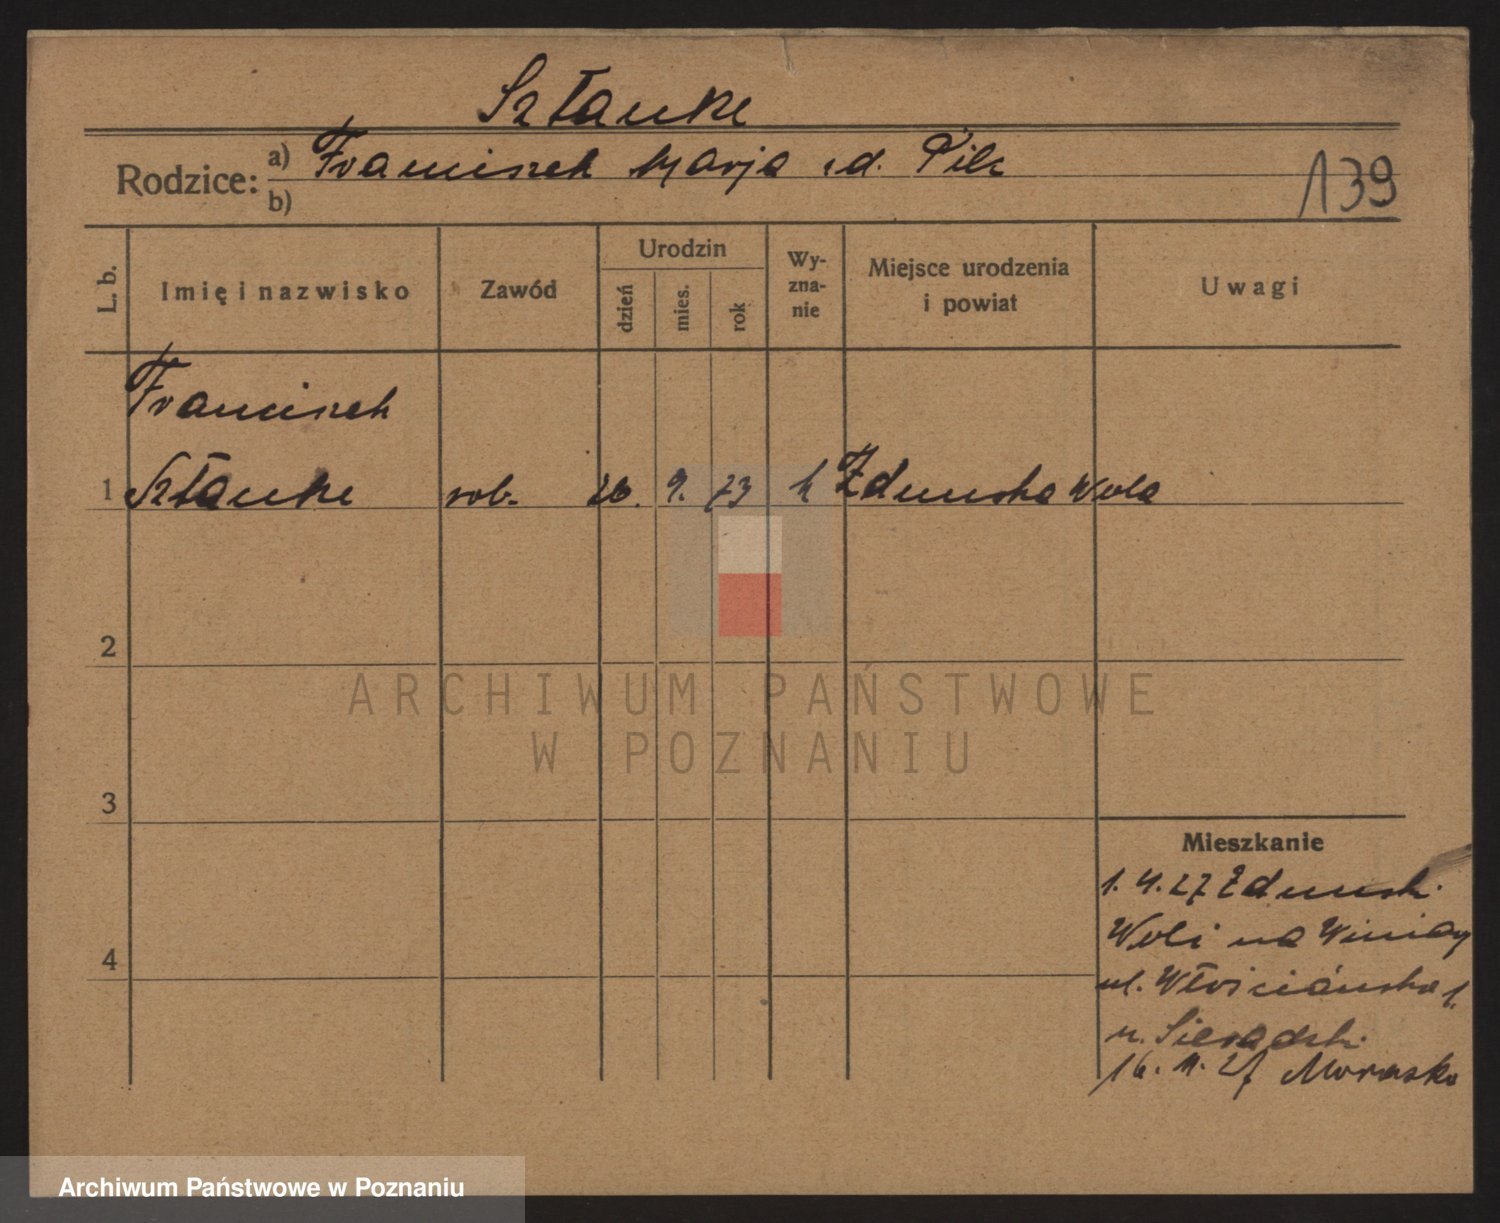 Sztanke
Rodzice: a) Franciszek Marja z d. Pilc
b)
139
L. b.
Imię i nazwisko
Zawód
Urodzin
dzień
mies.
rok
Wy-
zna-
nie
Miejsce urodzenia
i powiat
Uwagi
Franciszek
1 Sztanke rob. 26. 9. 73 k Zdunska Wola
2
3
4
Mieszkanie
1. 4. 27 Zdunsk.
Woli na Winiary
ul. Włościańska 1.
u. Sieradzk.
16. 11. 27 Morasko
ARCHIWUM PAŃSTWOWE
W POZNANIU
Archiwum Państwowe w Poznaniu